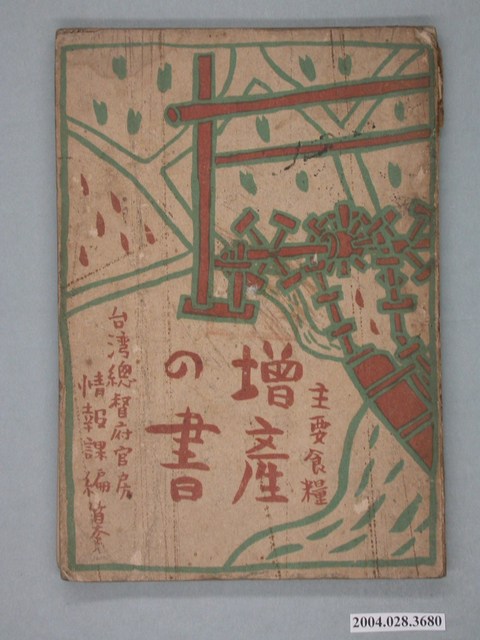 主要食糧
增産
の書
台湾總督府官房
情報課編纂
2004.028.3680